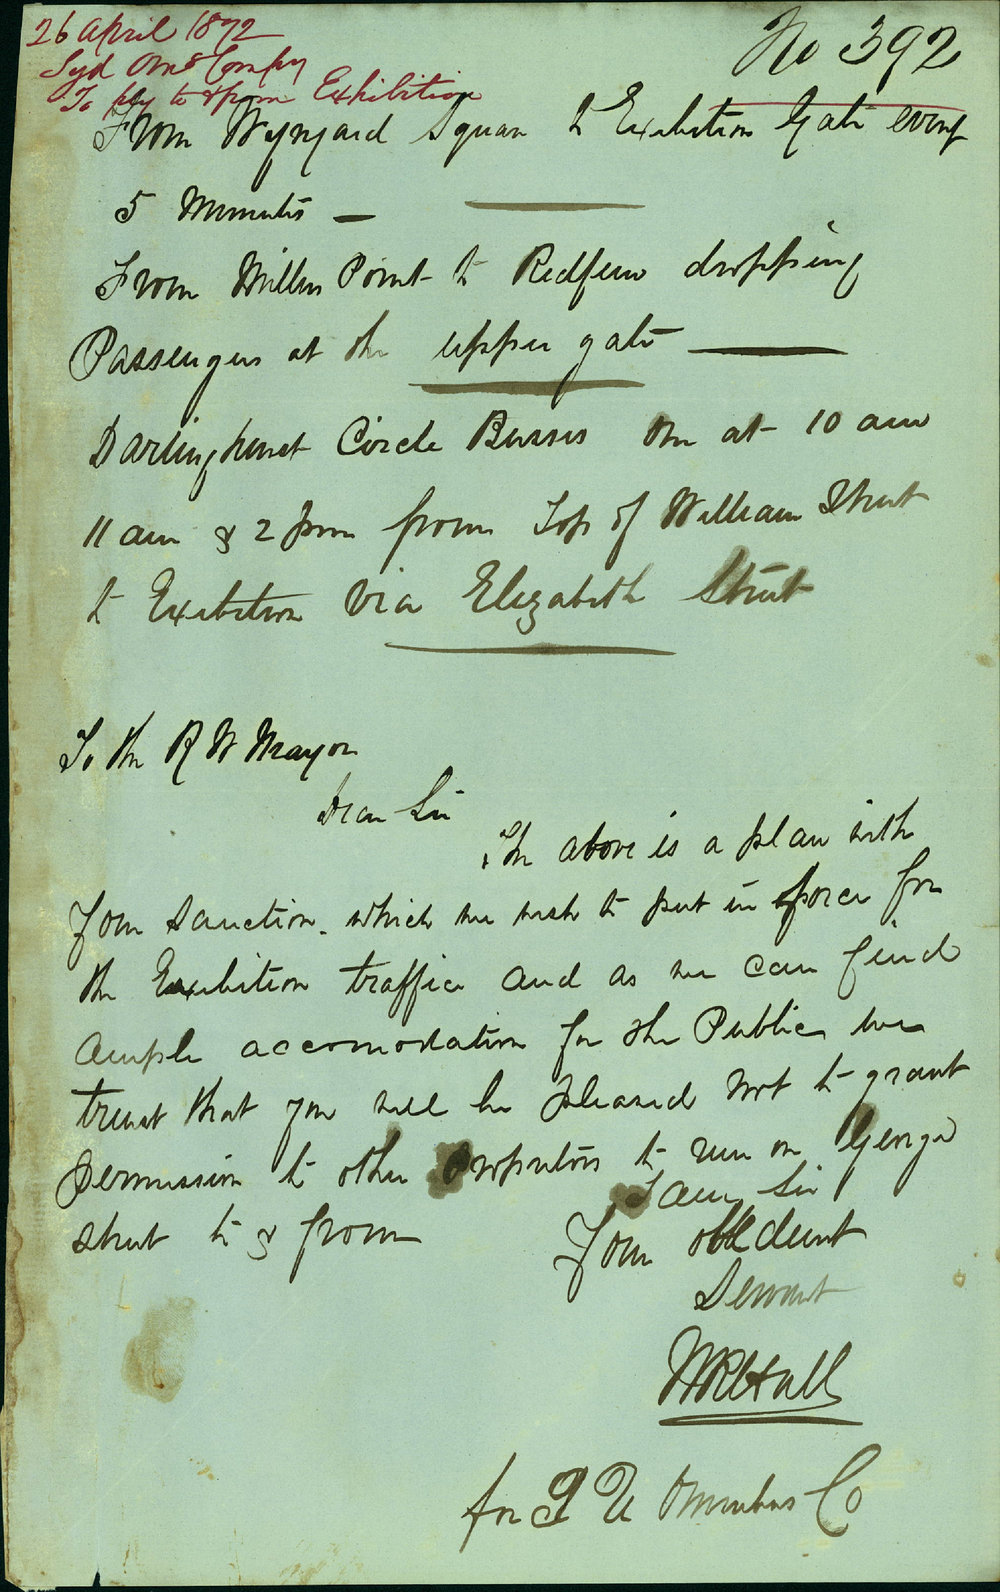 26 April 1872
Syd Oms Compy
To ply to & from Exhibition
No 392
From Wynyard Square to Exibition Gate every
5 Minutes —
From Millers Point to Redfern dropping
Passengers at the upper gate —
Darlinghurst Circle Busses One at 10 am
11 am & 2 pm from Top of William Street
to Exibition Via Elizabeth Street
To the R W Mayor
Dear Sir
The above is a plan with
Your Sanction. which we wish to put in force for
the Exibition traffic and as we can find
ample accomodation for the Public we
trust that you will be pleased not to grant
permission to other propietors to run on George
street to & from
I am Sir
Your obedient
Servant
W R Hall
for Omnibus Co